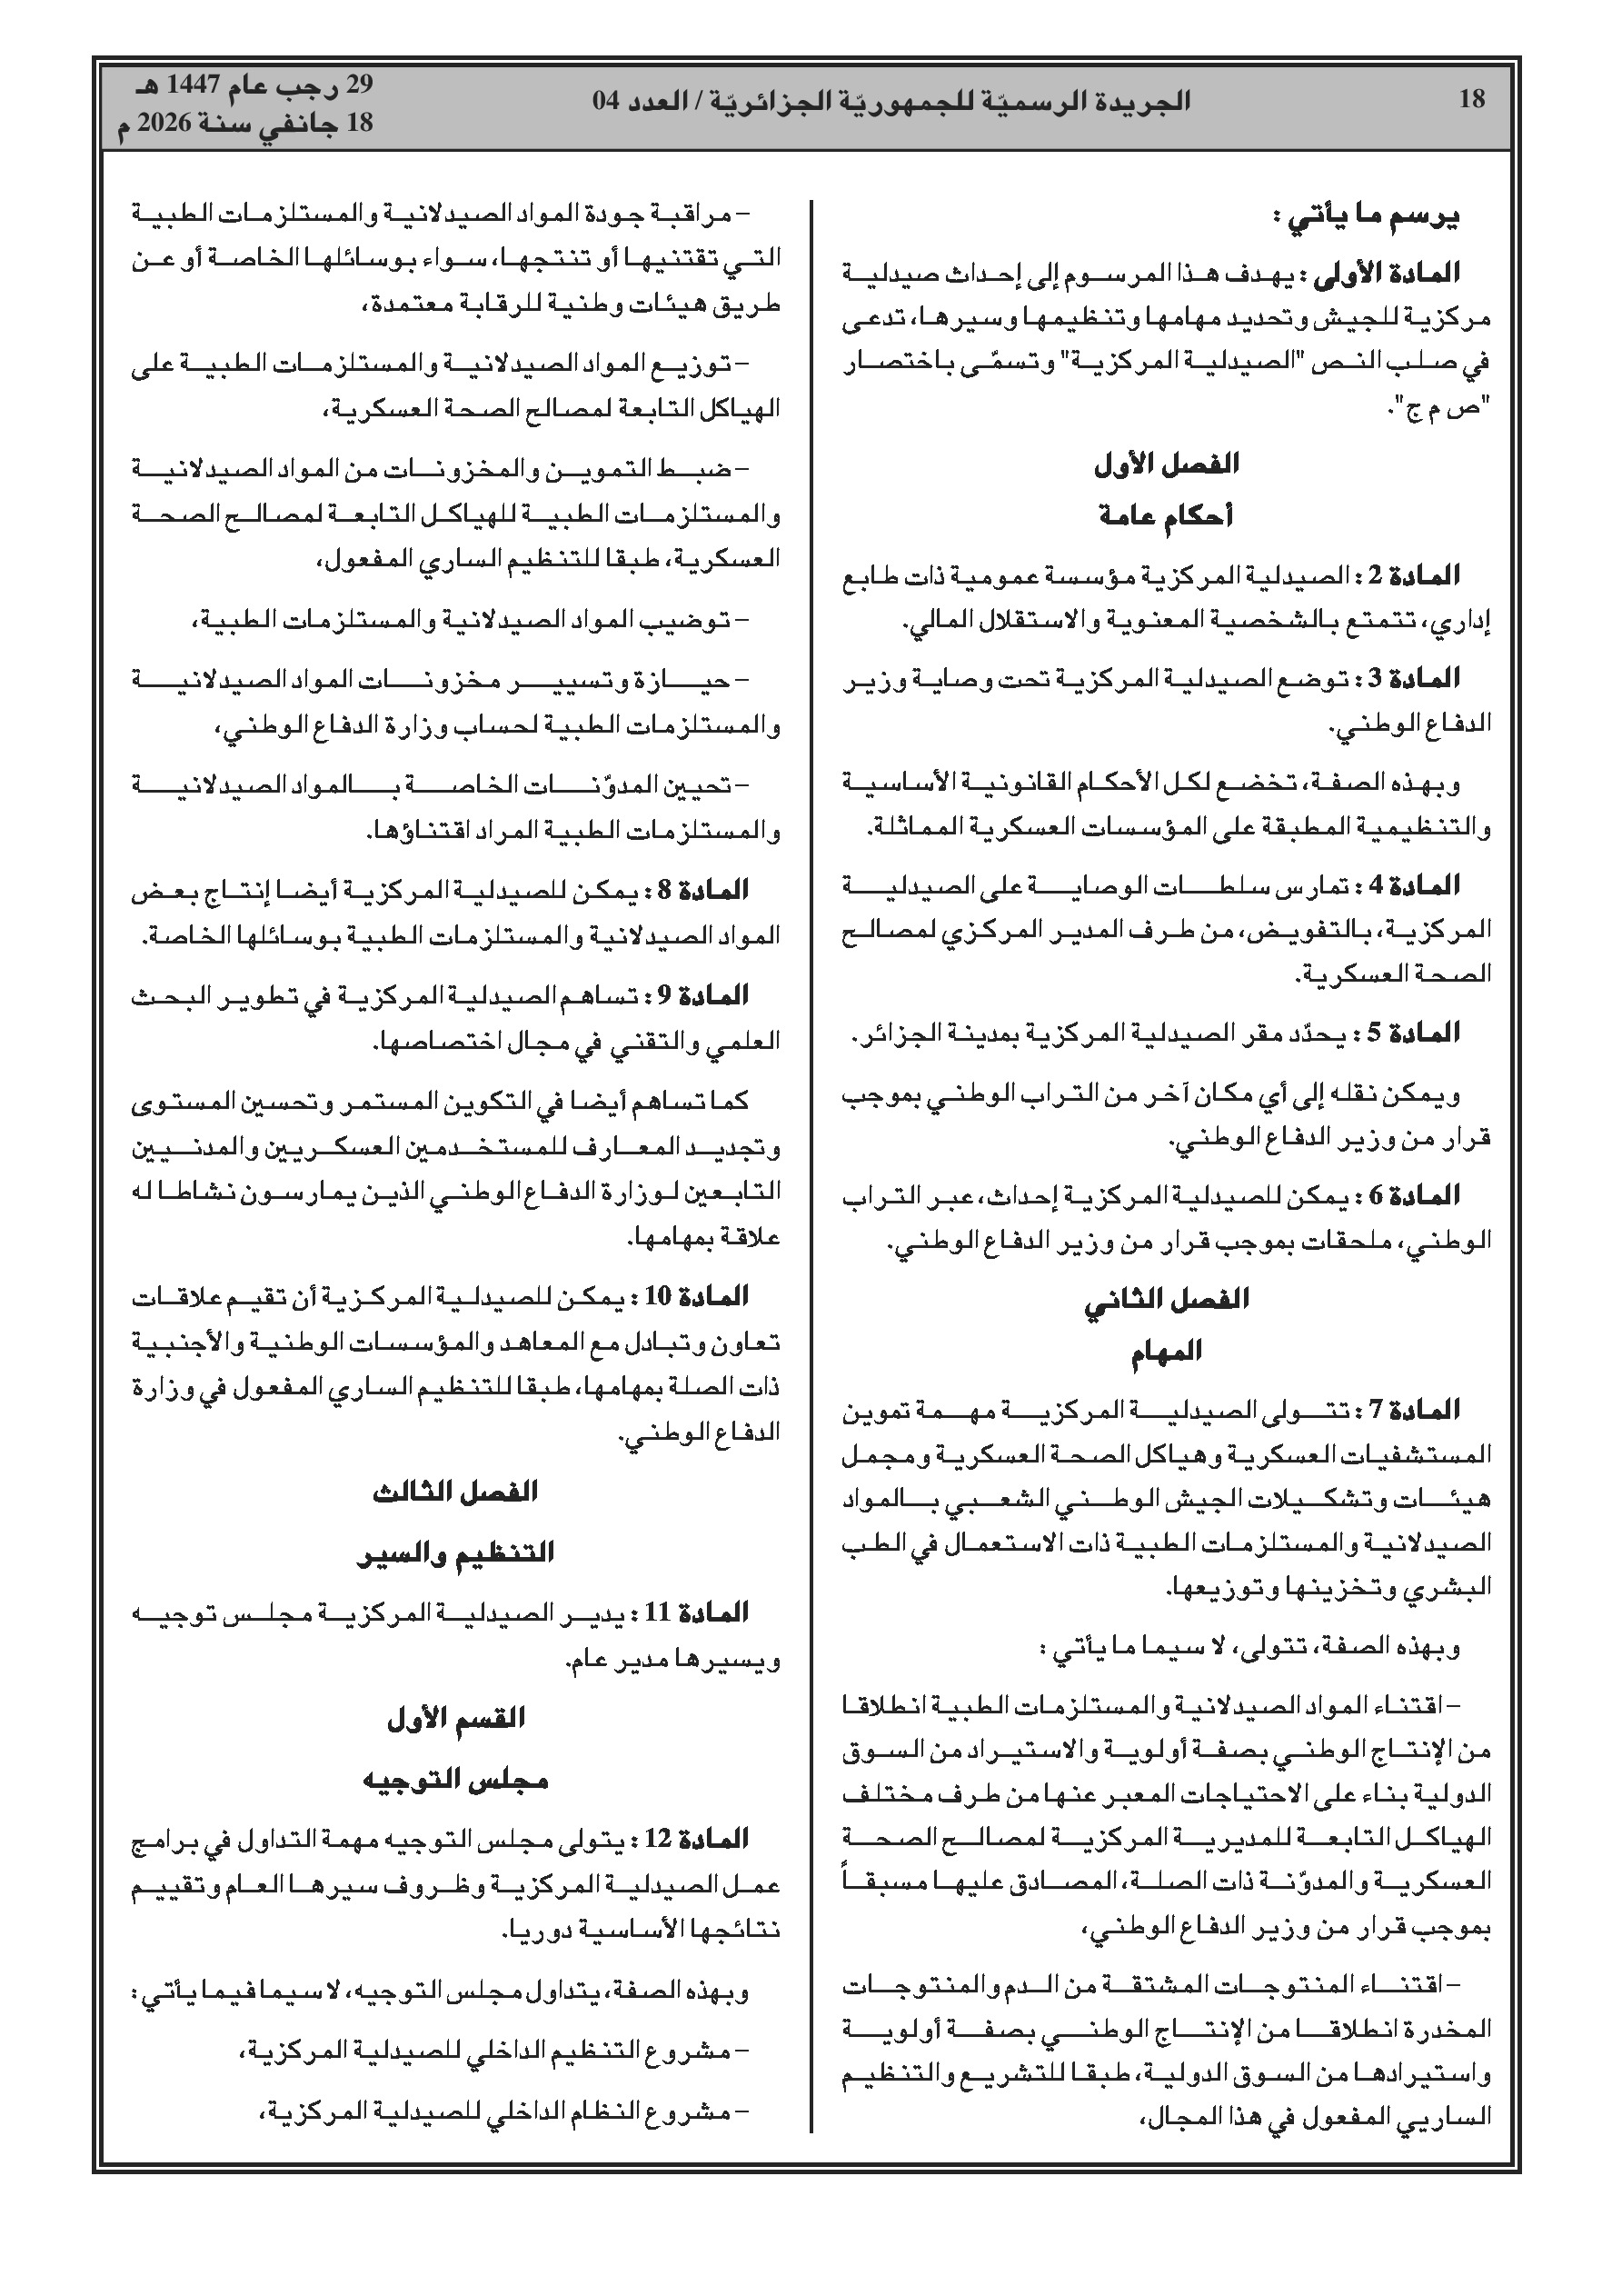 18
الجريدة الرسميّة للجمهوريّة الجزائريّة / العدد 04
29 رجب عام 1447 هـ
18 جانفي سنة 2026 م
يرسم ما يأتي :
المادة الأولى : يهدف هذا المرسوم إلى إحداث صيدلية
مركزية للجيش وتحديد مهامها وتنظيمها وسيرها، تدعى
في صلب النص "الصيدلية المركزية" وتسمّى باختصار
"ص م ج".
الفصل الأول
أحكام عامة
المادة 2 : الصيدلية المركزية مؤسسة عمومية ذات طابع
إداري، تتمتع بالشخصية المعنوية والاستقلال المالي.
المادة 3 : توضع الصيدلية المركزية تحت وصاية وزير
الدفاع الوطني.
وبهذه الصفة، تخضع لكل الأحكام القانونية الأساسية
والتنظيمية المطبقة على المؤسسات العسكرية المماثلة.
المادة 4 : تمارس سلطات الوصاية على الصيدلية
المركزية، بالتفويض، من طرف المدير المركزي لمصالح
الصحة العسكرية.
المادة 5 : يحدّد مقر الصيدلية المركزية بمدينة الجزائر.
ويمكن نقله إلى أي مكان آخر من التراب الوطني بموجب
قرار من وزير الدفاع الوطني.
المادة 6 : يمكن للصيدلية المركزية إحداث، عبر التراب
الوطني، ملحقات بموجب قرار من وزير الدفاع الوطني.
الفصل الثاني
المهام
المادة 7 : تتولى الصيدلية المركزية مهمة تموين
المستشفيات العسكرية وهياكل الصحة العسكرية ومجمل
هيئات وتشكيلات الجيش الوطني الشعبي بالمواد
الصيدلانية والمستلزمات الطبية ذات الاستعمال في الطب
البشري وتخزينها وتوزيعها.
وبهذه الصفة، تتولى، لا سيما ما يأتي :
– اقتناء المواد الصيدلانية والمستلزمات الطبية انطلاقا
من الإنتاج الوطني بصفة أولوية والاستيراد من السوق
الدولية بناء على الاحتياجات المعبر عنها من طرف مختلف
الهياكل التابعة للمديرية المركزية لمصالح الصحة
العسكرية والمدوّنة ذات الصلة، المصادق عليها مسبقاً
بموجب قرار من وزير الدفاع الوطني،
– اقتناء المنتوجات المشتقة من الدم والمنتوجات
المخدرة انطلاقا من الإنتاج الوطني بصفة أولوية
واستيرادها من السوق الدولية، طبقا للتشريع والتنظيم
الساريي المفعول في هذا المجال،
– مراقبة جودة المواد الصيدلانية والمستلزمات الطبية
التي تقتنيها أو تنتجها، سواء بوسائلها الخاصة أو عن
طريق هيئات وطنية للرقابة معتمدة،
– توزيع المواد الصيدلانية والمستلزمات الطبية على
الهياكل التابعة لمصالح الصحة العسكرية،
– ضبط التموين والمخزونات من المواد الصيدلانية
والمستلزمات الطبية للهياكل التابعة لمصالح الصحة
العسكرية، طبقا للتنظيم الساري المفعول،
– توضيب المواد الصيدلانية والمستلزمات الطبية،
– حيازة وتسيير مخزونات المواد الصيدلانية
والمستلزمات الطبية لحساب وزارة الدفاع الوطني،
– تحيين المدوّنات الخاصة بالمواد الصيدلانية
والمستلزمات الطبية المراد اقتناؤها.
المادة 8 : يمكن للصيدلية المركزية أيضا إنتاج بعض
المواد الصيدلانية والمستلزمات الطبية بوسائلها الخاصة.
المادة 9 : تساهم الصيدلية المركزية في تطوير البحث
العلمي والتقني في مجال اختصاصها.
كما تساهم أيضا في التكوين المستمر وتحسين المستوى
وتجديد المعارف للمستخدمين العسكريين والمدنيين
التابعين لوزارة الدفاع الوطني الذين يمارسون نشاطا له
علاقة بمهامها.
المادة 10 : يمكن للصيدلية المركزية أن تقيم علاقات
تعاون وتبادل مع المعاهد والمؤسسات الوطنية والأجنبية
ذات الصلة بمهامها، طبقا للتنظيم الساري المفعول في وزارة
الدفاع الوطني.
الفصل الثالث
التنظيم والسير
المادة 11 : يدير الصيدلية المركزية مجلس توجيه
ويسيرها مدير عام.
القسم الأول
مجلس التوجيه
المادة 12 : يتولى مجلس التوجيه مهمة التداول في برامج
عمل الصيدلية المركزية وظروف سيرها العام وتقييم
نتائجها الأساسية دوريا.
وبهذه الصفة، يتداول مجلس التوجيه، لا سيما فيما يأتي :
– مشروع التنظيم الداخلي للصيدلية المركزية،
– مشروع النظام الداخلي للصيدلية المركزية،